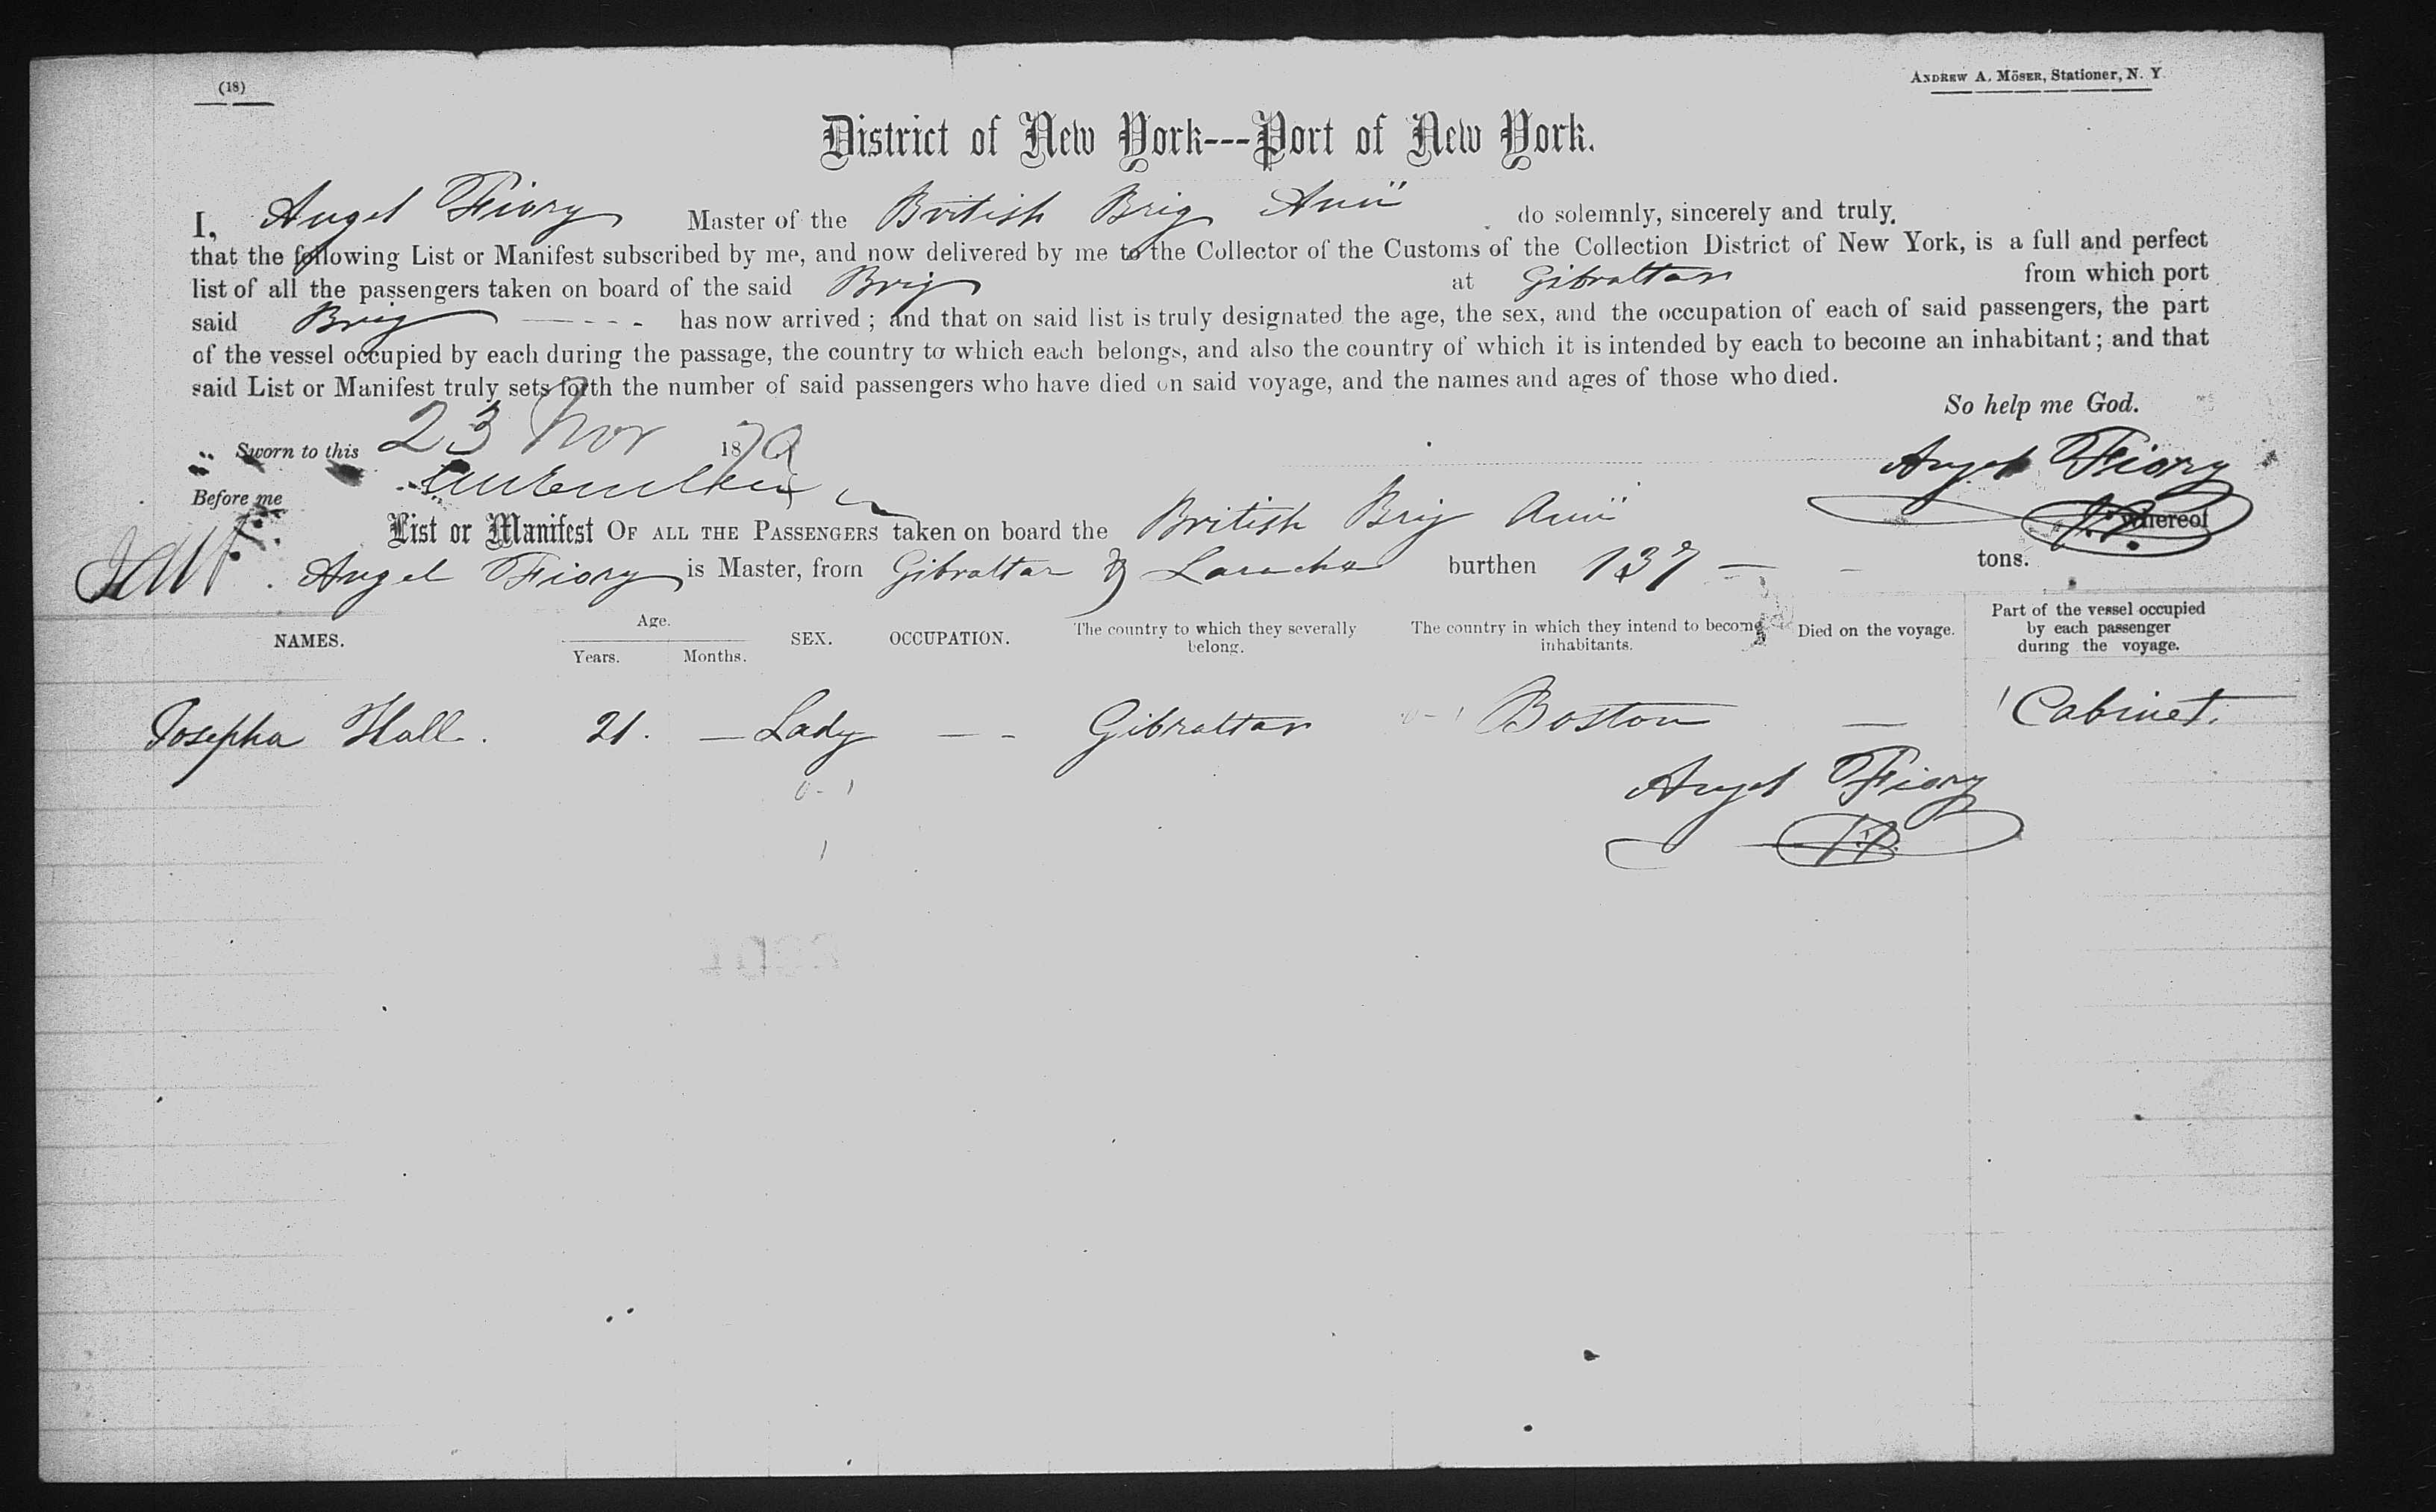 (18)
ANDREW A. MÖSER, Stationer, N. Y.
District of New York---Port of New York.
I, Angel Fiory Master of the British Brig Ann do solemnly, sincerely and truly,
that the following List or Manifest subscribed by me, and now delivered by me to the Collector of the Customs of the Collection District of New York, is a full and perfect
list of all the passengers taken on board of the said Brig at Gibraltar from which port
said Brig ---- has now arrived; and that on said list is truly designated the age, the sex, and the occupation of each of said passengers, the part
of the vessel occupied by each during the passage, the country to which each belongs, and also the country of which it is intended by each to become an inhabitant; and that
said List or Manifest truly sets forth the number of said passengers who have died on said voyage, and the names and ages of those who died.
So help me God.
Sworn to this 23 Nov 187
Angel Fiory
Before me
List or Manifest OF ALL THE PASSENGERS taken on board the British Brig Ann whereof
Angel Fiory is Master, from Gibraltar & Laracha burthen 137 — — tons.
NAMES. Age. Years. Months. SEX. OCCUPATION. The country to which they severally belong. The country in which they intend to become inhabitants. Died on the voyage. Part of the vessel occupied by each passenger during the voyage.
Josepha Hall. 21. — Lady — - Gibraltar Boston — Cabinet.
Angel Fiory